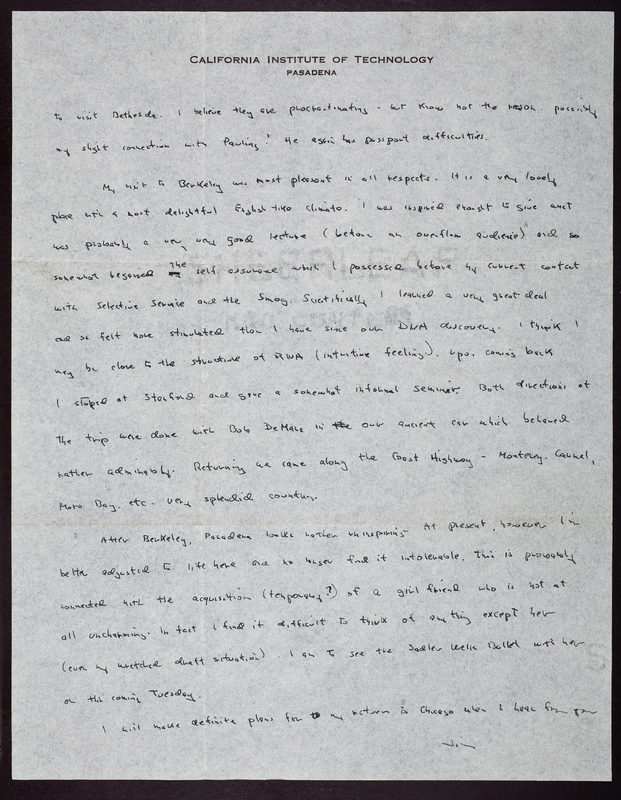 CALIFORNIA INSTITUTE OF TECHNOLOGY
PASADENA
to visit Bethesda. I believe they are procrastinating - but know not the reason. possibly
my slight connection with Pauling? He again has passport difficulties.
My visit to Berkeley was most pleasant in all respects. It is a very lovely
place with a most delightful English-like climate. I was inspired enough to give what
was probably a very very good lecture (before an overflow audience) and so
somewhat regained the self assurance which I possessed before my current contact
with Selective Service and the Smog. Scientifically I learned a very great deal
and so felt more stimulated than I have since our DNA discovery. I think I
may be close to the structure of RNA (intuitive feeling). Upon coming back
I stoped at Stanford and gave a somewhat informal seminar. Both directions of
the trip were done with Bob DeMars in our ancient car which behaved
rather admirably. Returning we came along the Coast Highway - Monterey, Carmel,
Moro Bay, etc. very splendid country.
After Berkeley, Pasadena looks rather uninspiring. At present, however I'm
better adjusted to life here and no longer find it intolerable. This is probably
connected with the acquisition (temporary?) of a girl friend who is not at
all uncharming. In fact I find it difficult to think of anything except her
(even my wretched draft situation). I am to see the Sadler Wells Ballet with her
on this coming Tuesday.
I will make definite plans for my return to Chicago when I hear from you
Jim